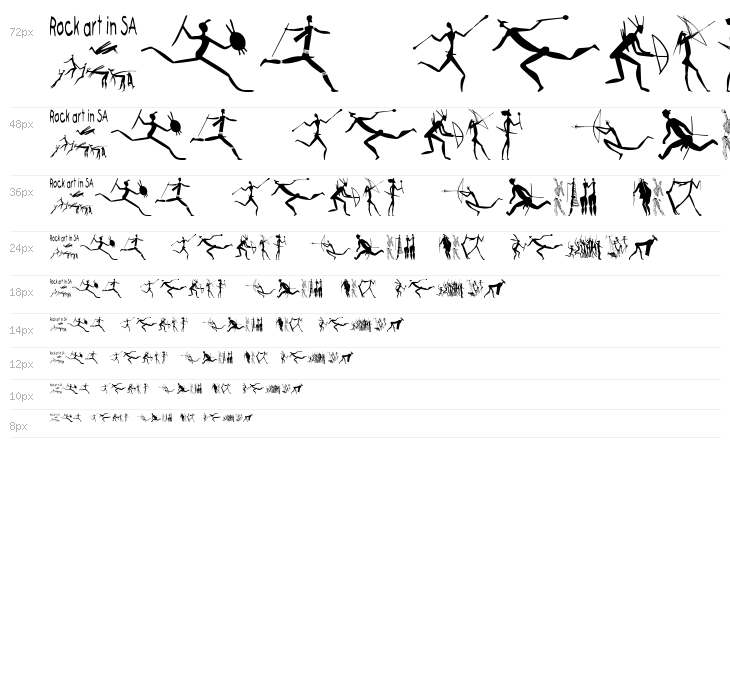 72px Rock art in SA
48px Rock art in SA
36px Rock art in SA
24px Rock art in SA
18px Rock art in SA
14px Rock art in SA
12px Rock art in SA
10px
8px